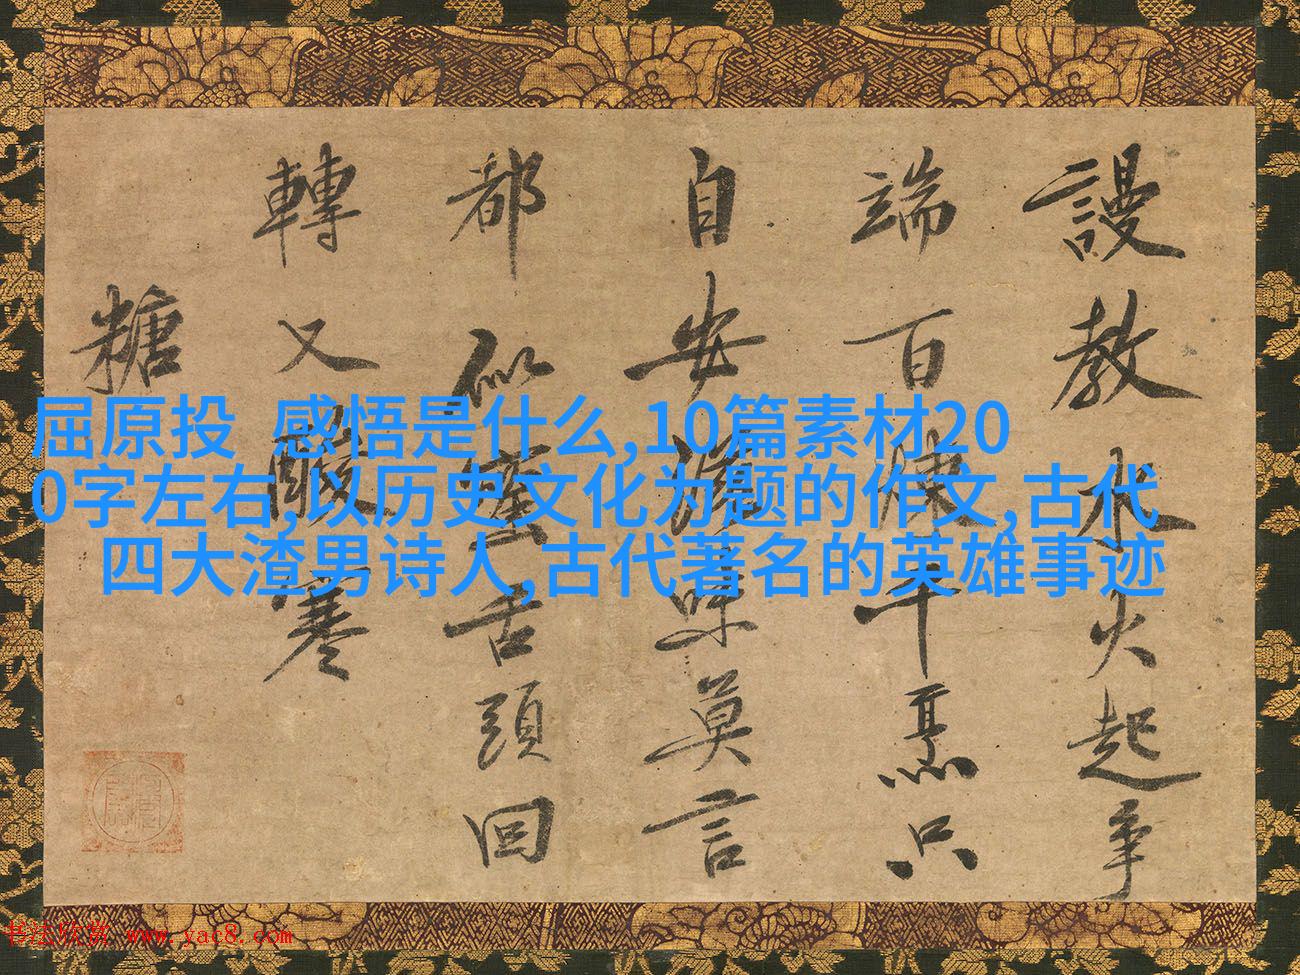 謾教水火起爭
端百煉千只
自安滋味莫言
都似蜜舌頭回
轉又酸寒
糖
屈原投 感悟是什么,10篇素材20
0字左右,以历史文化为题的作文,古代
四大渣男诗人,古代著名的英雄事迹
书法欣赏 www.yac8.com